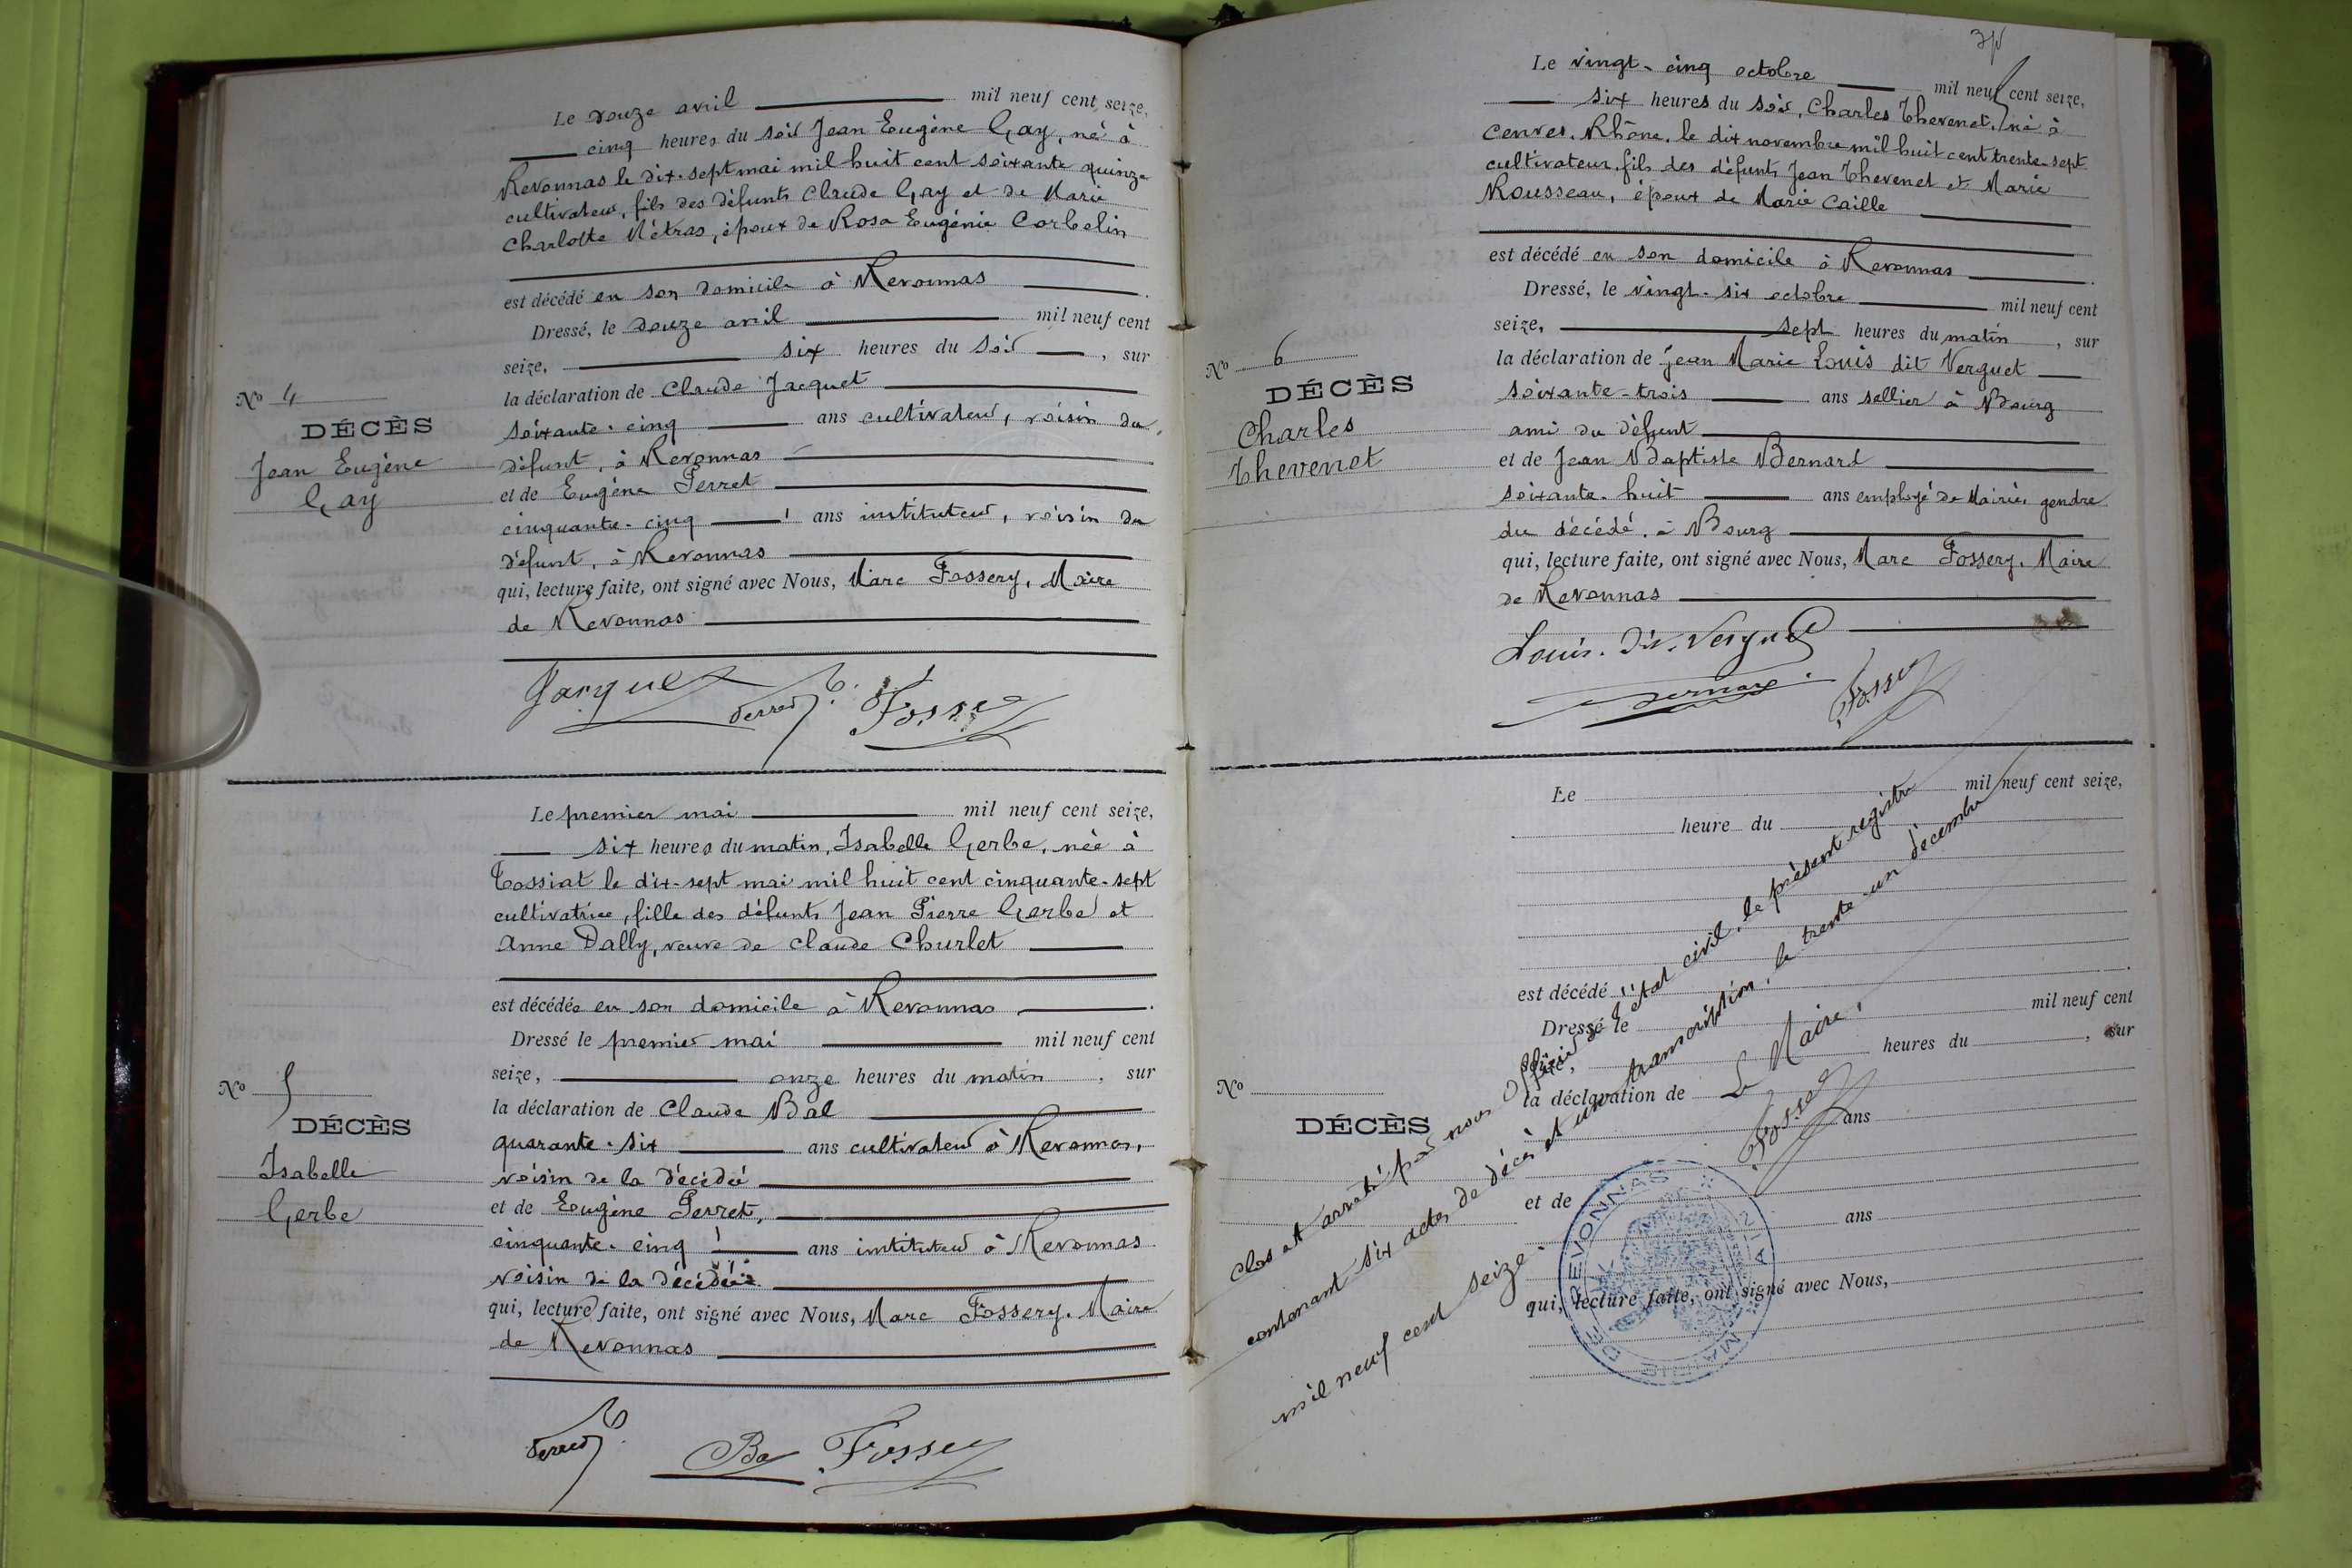 Le douze avril mil neuf cent seize,
cinq heures du soir Jean Eugène Gay, né à
Revonnas le dix-sept mai mil huit cent soixante quinze
cultivateur, fils des défunts Claude Gay et de Marie
Charlotte Métras, époux de Rosa Eugénie Corbelin
est décédé en son domicile à Revonnas
Dressé, le douze avril mil neuf cent
seize, six heures du soir, sur
la déclaration de Claude Jacquet
soixante-cinq ans cultivateur, voisin du
défunt, à Revonnas
et de Eugène Perret
cinquante-cinq ans instituteur, voisin du
défunt, à Revonnas
qui, lecture faite, ont signé avec Nous, Marc Fossery, Maire
de Revonnas
Nº 4
DÉCÈS
Jean Eugène
Gay
Jacquet Perret Fossery
Le premier mai mil neuf cent seize,
six heures du matin, Isabelle Gerbe, née à
Tossiat le dix-sept mai mil huit cent cinquante-sept
cultivatrice, fille des défunts Jean Pierre Gerbe et
Anne Dally, veuve de Claude Churlet
est décédée en son domicile à Revonnas
Dressé le premier mai mil neuf cent
seize, onze heures du matin, sur
la déclaration de Claude Bal
quarante-six ans cultivateur à Revonnas,
voisin de la décédée
et de Eugène Perret,
cinquante-cinq ans instituteur à Revonnas
voisin de la décédée
qui, lecture faite, ont signé avec Nous, Marc Fossery, Maire
de Revonnas
Nº 5
DÉCÈS
Isabelle
Gerbe
Perret Bal Fossery
Le vingt-cinq octobre mil neuf cent seize,
six heures du soir, Charles Thevenet, né à
Cenves, Rhône, le dix novembre mil huit cent trente-sept
cultivateur, fils des défunts Jean Thevenet et Marie
Rousseau, époux de Marie Caille
est décédé en son domicile à Revonnas
Dressé, le vingt-six octobre mil neuf cent
seize, sept heures du matin, sur
la déclaration de Jean Marie Louis dit Verguet
soixante-trois ans sellier à Bourg
ami du défunt
et de Jean Baptiste Bernard
soixante-huit ans employé de Mairie, gendre
du décédé, à Bourg
qui, lecture faite, ont signé avec Nous, Marc Fossery, Maire
de Revonnas
Nº 6
DÉCÈS
Charles
Thevenet
Louis dit Verguet
Bernard Fossery
Le mil neuf cent seize,
heure du
est décédé
Dressé le mil neuf cent
seize, heures du , sur
la déclaration de
ans
et de
ans
qui, lecture faite, ont signé avec Nous,
Nº
DÉCÈS
Clos et arrêté par nous Officier de l'état civil, le présent registre
contenant six actes de décès et une transcription, le trente-un décembre
mil neuf cent seize.
Le Maire,
Fossery
MAIRIE DE REVONNAS AIN